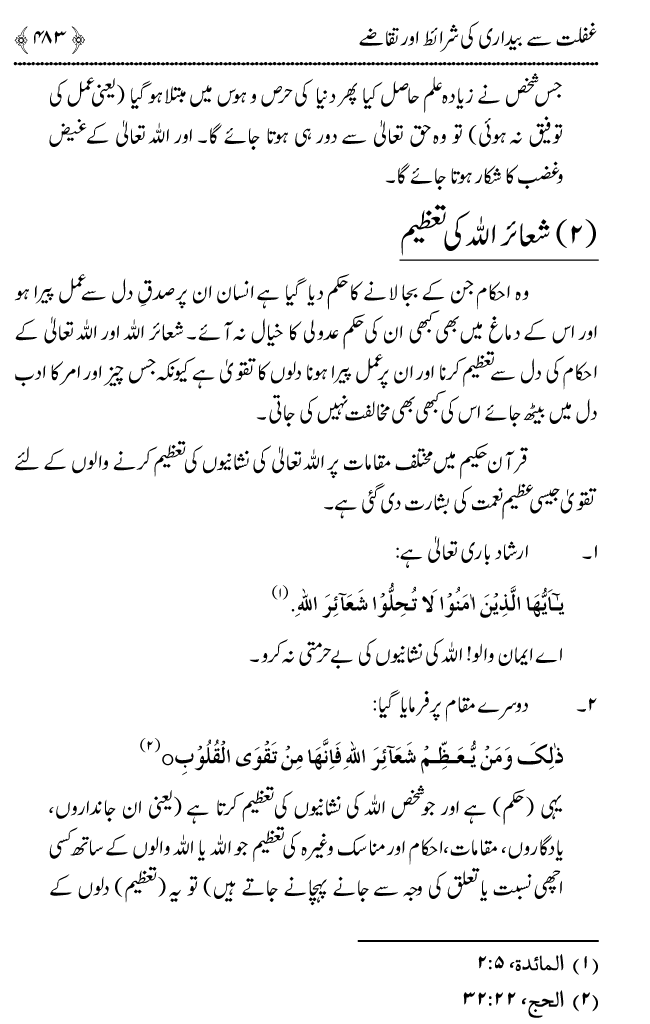 غفلت سے بیداری کی شرائط اور تقاضے ﴿۴۸۳﴾
جس شخص نے زیادہ علم حاصل کیا پھر دنیا کی حرص و ہوس میں مبتلا ہو گیا (یعنی عمل کی
توفیق نہ ہوئی) تو وہ حق تعالیٰ سے دور ہی ہوتا جائے گا۔ اور اللہ تعالیٰ کے غیض
وغضب کا شکار ہوتا جائے گا۔
(۲) شعائر اللہ کی تعظیم
وہ احکام جن کے بجا لانے کا حکم دیا گیا ہے انسان ان پر صدقِ دل سے عمل پیرا ہو
اور اس کے دماغ میں بھی کبھی ان کی حکم عدولی کا خیال نہ آئے۔ شعائر اللہ اور اللہ تعالیٰ کے
احکام کی دل سے تعظیم کرنا اور ان پر عمل پیرا ہونا دلوں کا تقویٰ ہے کیونکہ جس چیز اور امر کا ادب
دل میں بیٹھ جائے اس کی کبھی بھی مخالفت نہیں کی جاتی۔
قرآن حکیم میں مختلف مقامات پر اللہ تعالیٰ کی نشانیوں کی تعظیم کرنے والوں کے لئے
تقویٰ جیسی عظیم نعمت کی بشارت دی گئی ہے۔
۱۔ ارشاد باری تعالیٰ ہے:
يٰٓـاَيُّهَا الَّذِيْنَ اٰمَنُوْا لَا تُحِلُّوْا شَعَآئِرَ اللهِ.(۱)
اے ایمان والو! اللہ کی نشانیوں کی بے حرمتی نہ کرو۔
۲۔ دوسرے مقام پر فرمایا گیا:
ذٰلِکَ وَمَنْ يُّعَظِّمْ شَعَآئِرَ اللهِ فَاِنَّهَا مِنْ تَقْوَی الْقُلُوْبِo(۲)
یہی (حکم) ہے اور جو شخص اللہ کی نشانیوں کی تعظیم کرتا ہے (یعنی ان جانداروں،
یادگاروں، مقامات، احکام اور مناسک وغیرہ کی تعظیم جو اللہ یا اللہ والوں کے ساتھ کسی
اچھی نسبت یا تعلق کی وجہ سے جانے پہچانے جاتے ہیں) تو یہ (تعظیم) دلوں کے
(۱) المائدة، ۵:۲
(۲) الحج، ۲۲:۳۲